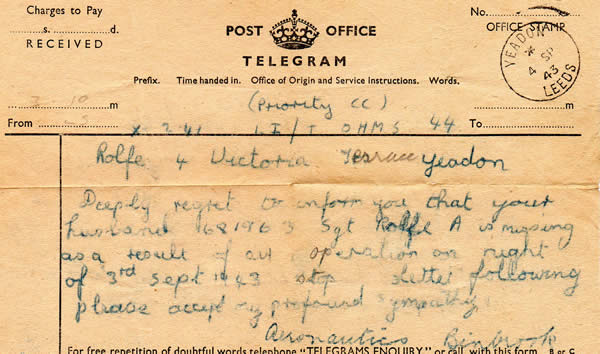 Charges to Pay
s. d.
RECEIVED
POST OFFICE
TELEGRAM
Prefix. Time handed in. Office of Origin and Service Instructions. Words.
No.
OFFICE STAMP
YEADON
4 SP
43
LEEDS
10 m
m
(Priority CC)
From
X 241 LI/T OHMS 44
To
Rolfe 4 Victoria Terrace Yeadon
Deeply regret to inform you that your
husband Sgt Rolfe A is missing
as a result of air operation on night
of 3rd Sept 1943 stop letter following
please accept my profound sympathy
Aeronautics Binbrook
For free repetition of doubtful words telephone "TELEGRAMS ENQUIRY" or call, with this form B or C